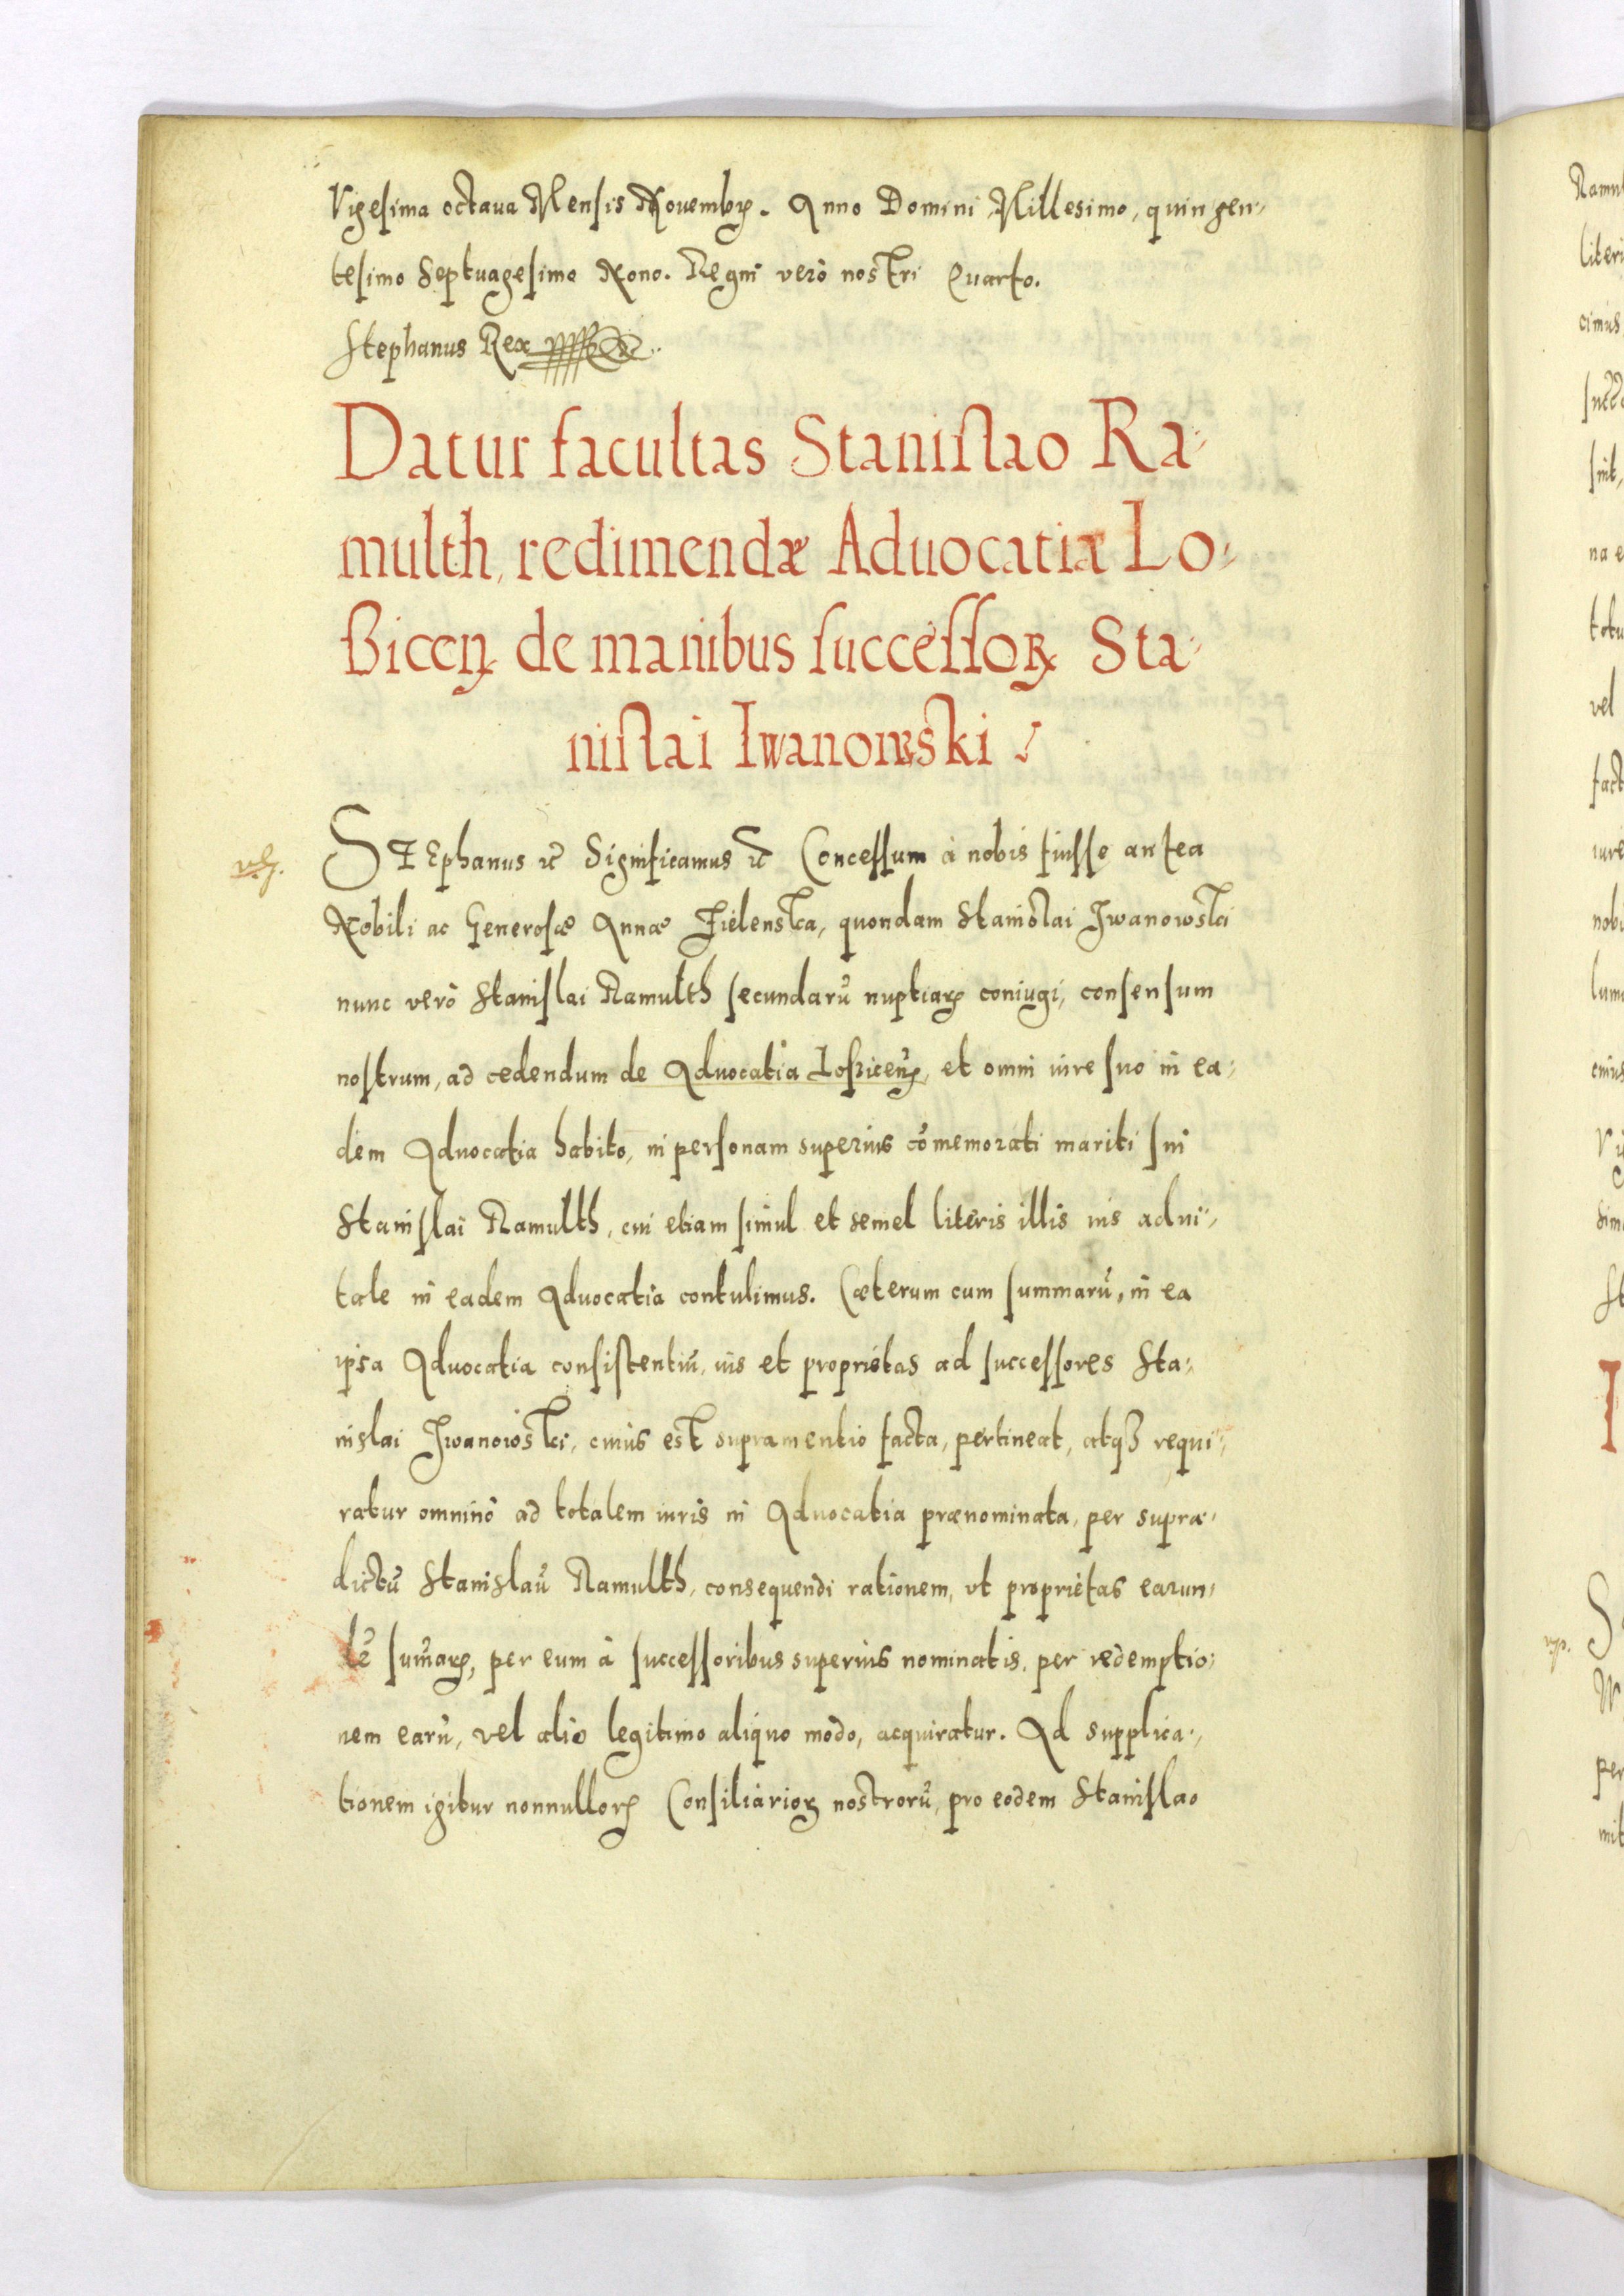 Vigesima octaua Mensis Nouembrꝭ. Anno Domini Millesimo, quingen-
tesimo Septuagesimo Nono. Regni verò nostri Quarto.
Stephanus Rex
Datur facultas Stanislao Ra-
multh, redimendæ Aduocatiæ Lo-
ßiceñ de manibus successoꝝ Sta-
nislai Iwanowski
STEphanus ꝛc Significamus ꝛc Concessum à nobis fuisse antea
Nobili ac Generosæ Annæ Zielenska, quondam Stanislai Iwanowski
nunc verò Stanislai Ramulth secundarũ nuptiaꝝ coniugi, consensum
nostrum, ad cedendum de Aduocatia Loßiceñ, et omni iure suo in ea-
dem Aduocatia habito, in personam superius cõmemorati mariti sui
Stanislai Ramulth, cui etiam simul et semel literis illis ius adui-
tale in eadem Aduocatia contulimus. Cæterum cum summarũ, in ea
ipsa Aduocatia consistentiũ, ius et proprietas ad successores Sta-
nislai Iwanowski, cuius est supra mentio facta, pertineat, atqꝫ requi-
ratur omninò ad totalem iuris in Aduocatia prænominata, per supra-
dictũ Stanislaũ Ramulth, consequendi rationem, vt proprietas earun-
dẽ sum̃aꝝ, per eum à successoribus superius nominatis, per redemptio-
nem earũ, vel alio legitimo aliquo modo, acquiratur. Ad supplica-
tionem igitur nonnulloꝝ Consiliarioꝝ nostrorũ, pro eodem Stanislao